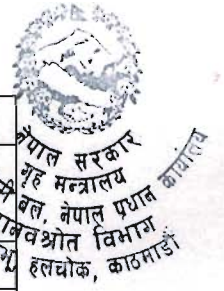 नेपाल सरकार
गृह मन्त्रालय
बल, नेपाल प्रधान कार्यालय
श्रोत विभाग
हलचोक, काठमाडौं